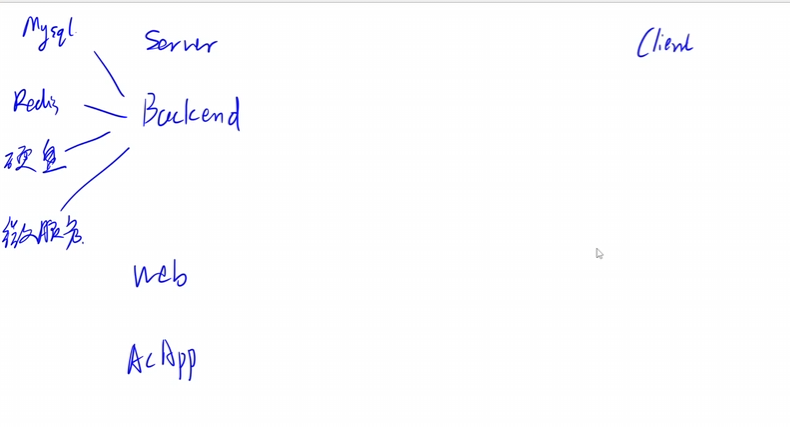 Mysql
Server
Client
Redis
Backend
硬盘
微服务
Web
AcApp